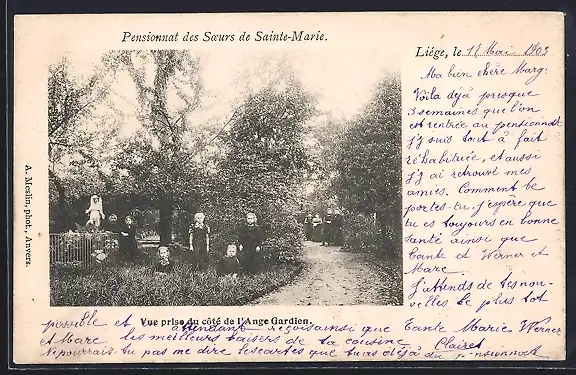 Pensionnat des Sœurs de Sainte-Marie.
Liége, le 11 Mai 1903
Ma bien chère Marg:
Voila déjà presque
3 semaines que l'on
est rentrée au pensionnat
j'y suis tout à fait
réhabituée, et aussi
j'y ai retrouvé mes
amies. Comment te
portes-tu, j'espère que
tu es toujours en bonne
santé ainsi que
tante et Werner et
Marc.
J'attends de tes nou-
velles le plus tot
A. Meslin, phot., Anvers.
Vue prise du côté de l'Ange Gardien.
possible et attendant reçois ainsi que Tante Marie Werner
et Marc les meilleurs baisers de ta cousine Claire
Ne pourrais-tu pas me dire les cartes que tu as déjà du pensionnat